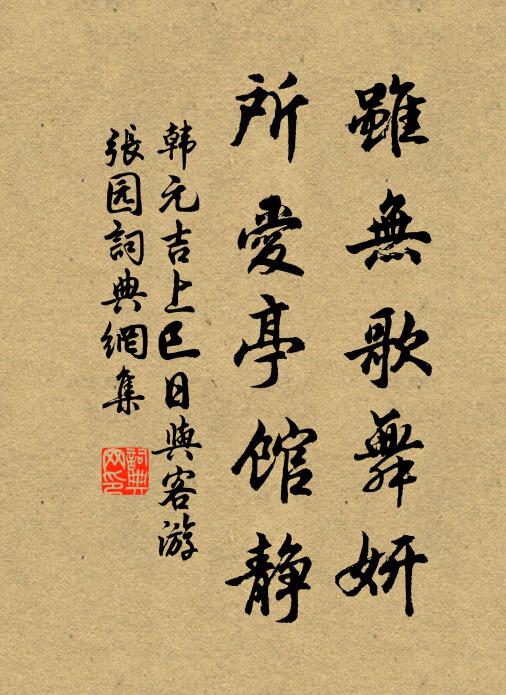 雖無歌舞妍
所愛亭館静
韩元吉上巳日與客游
張园詞典網集
詞典
网印